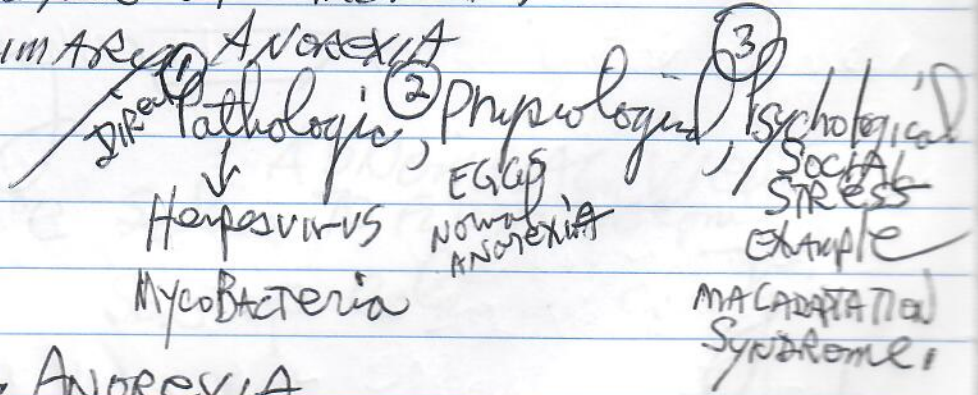 ANOREXIA
① Pathologic, ② Physiological, ③ Psychological
Direct
↓
Herpesvirus
Mycobacteria
EGGS
NORMAL
ANOREXIA
SOCIAL
STRESS
EXAMPLE
MALADAPTATION
SYNDROME
ANOREXIA